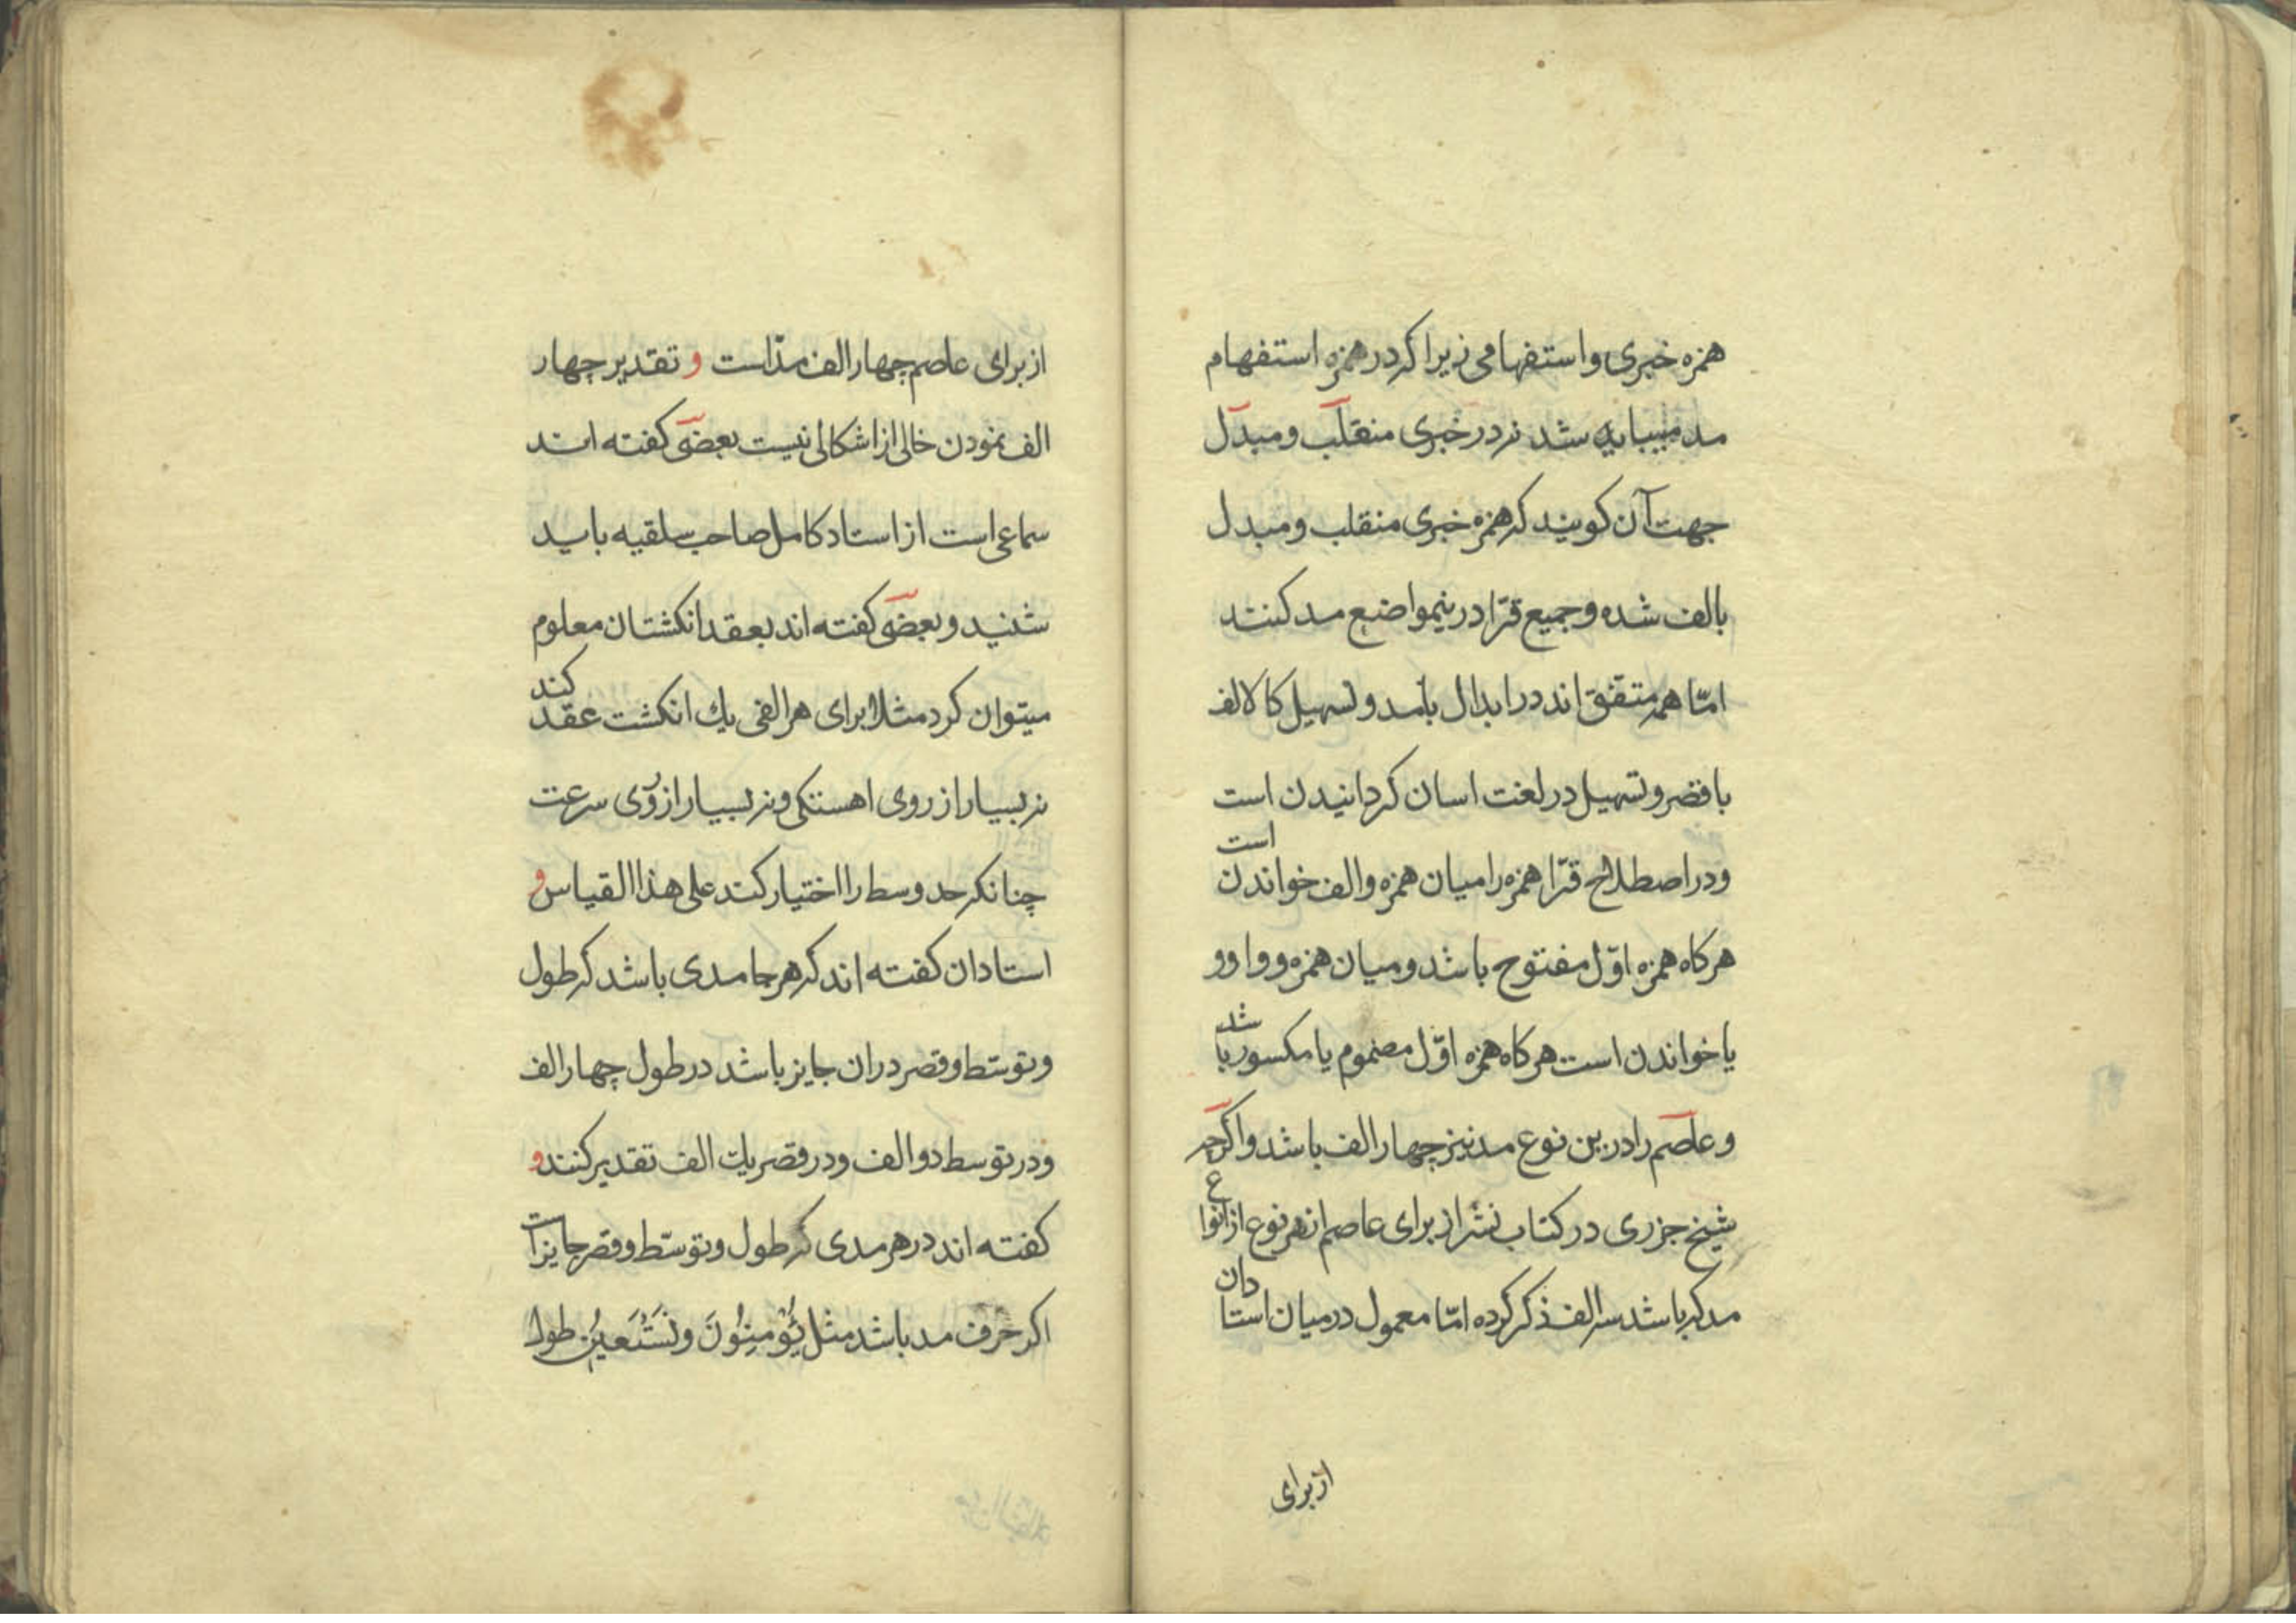 همزه خبری و استفهامی زیرا که در همزه استفهام
مد میباید شد نه در خبری منقلب و مبدل
جهت آن کویند که همزه خبری منقلب و مبدل
بالف شده و جمیع قرّا درینمواضع مد کنند
امّا همه متفق اند در ابدال بامد و تسهیل کالالف
با قصر و تسهیل در لغت اسان کردانیدن است
و در اصطلاح قرّا همزه را میان همزه و الف خواندن است
هرکاه همزه اوّل مفتوح باشد و میان همزه و واو و
یا خواندن است هرکاه همزه اوّل مضموم یا مکسور باشد
و عاصم را درین نوع مد نیز چهار الف باشد و اکرچه
شیخ جزری در کتاب نشر از برای عاصم از هر نوع از انواع
مد که باشد سه الف ذکر کرده امّا معمول در میان استادان
از برای
از برای عاصم چهار الف مدّاست و تقدیر چهار
الف نمودن خالی از اشکالی نیست بعضی کفته اند
سماعی است از استاد کامل صاحب سلقیه باید
شنید و بعضی کفته اند بعقد انکشتان معلوم
میتوان کرد مثلا برای هر الفی یك انکشت عقد کند
نه بسیار از روی اهستکی و نه بسیار از روی سرعت
چنانکه حد وسط را اختیار کند علی هذا القیاس و
استادان کفته اند که هر جا مدی باشد که طول
و توسّط و قصر در ان جایز باشد در طول چهار الف
و در توسط دو الف و در قصر یك الف تقدیر کنند و
کفته اند در هر مدی که طول و توسّط و قصر جایز است
اکر حرف مد باشد مثل یُؤْمِنُونَ و نَسْتَعینُ طولا